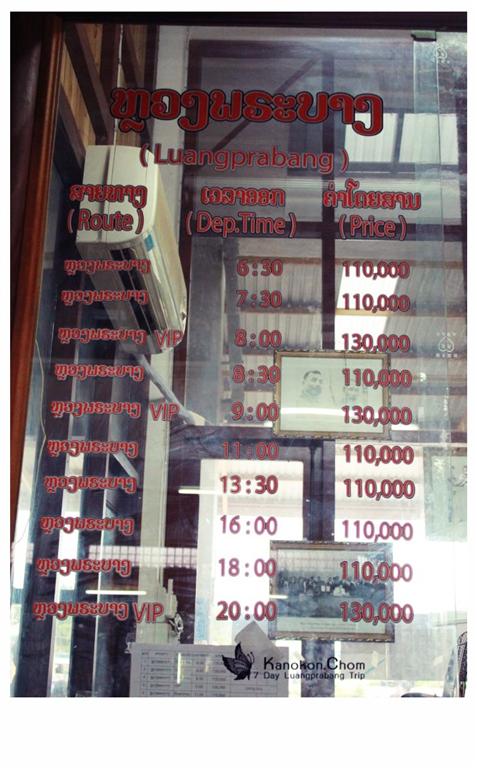 ຫຼວງພຣະບາງ
( Luangprabang )
ສາຍທາງ ເວລາອອກ ຄ່າໂດຍສານ
( Route ) ( Dep.Time ) ( Price )
ຫຼວງພຣະບາງ 6:30 110,000
ຫຼວງພຣະບາງ 7:30 110,000
ຫຼວງພຣະບາງ VIP 8:00 130,000
ຫຼວງພຣະບາງ 8:30 110,000
ຫຼວງພຣະບາງ VIP 9:00 130,000
ຫຼວງພຣະບາງ 11:00 110,000
ຫຼວງພຣະບາງ 13:30 110,000
ຫຼວງພຣະບາງ 16:00 110,000
ຫຼວງພຣະບາງ 18:00 110,000
ຫຼວງພຣະບາງ VIP 20:00 130,000
Kanokon.Chom
7 Day Luangprabang Trip